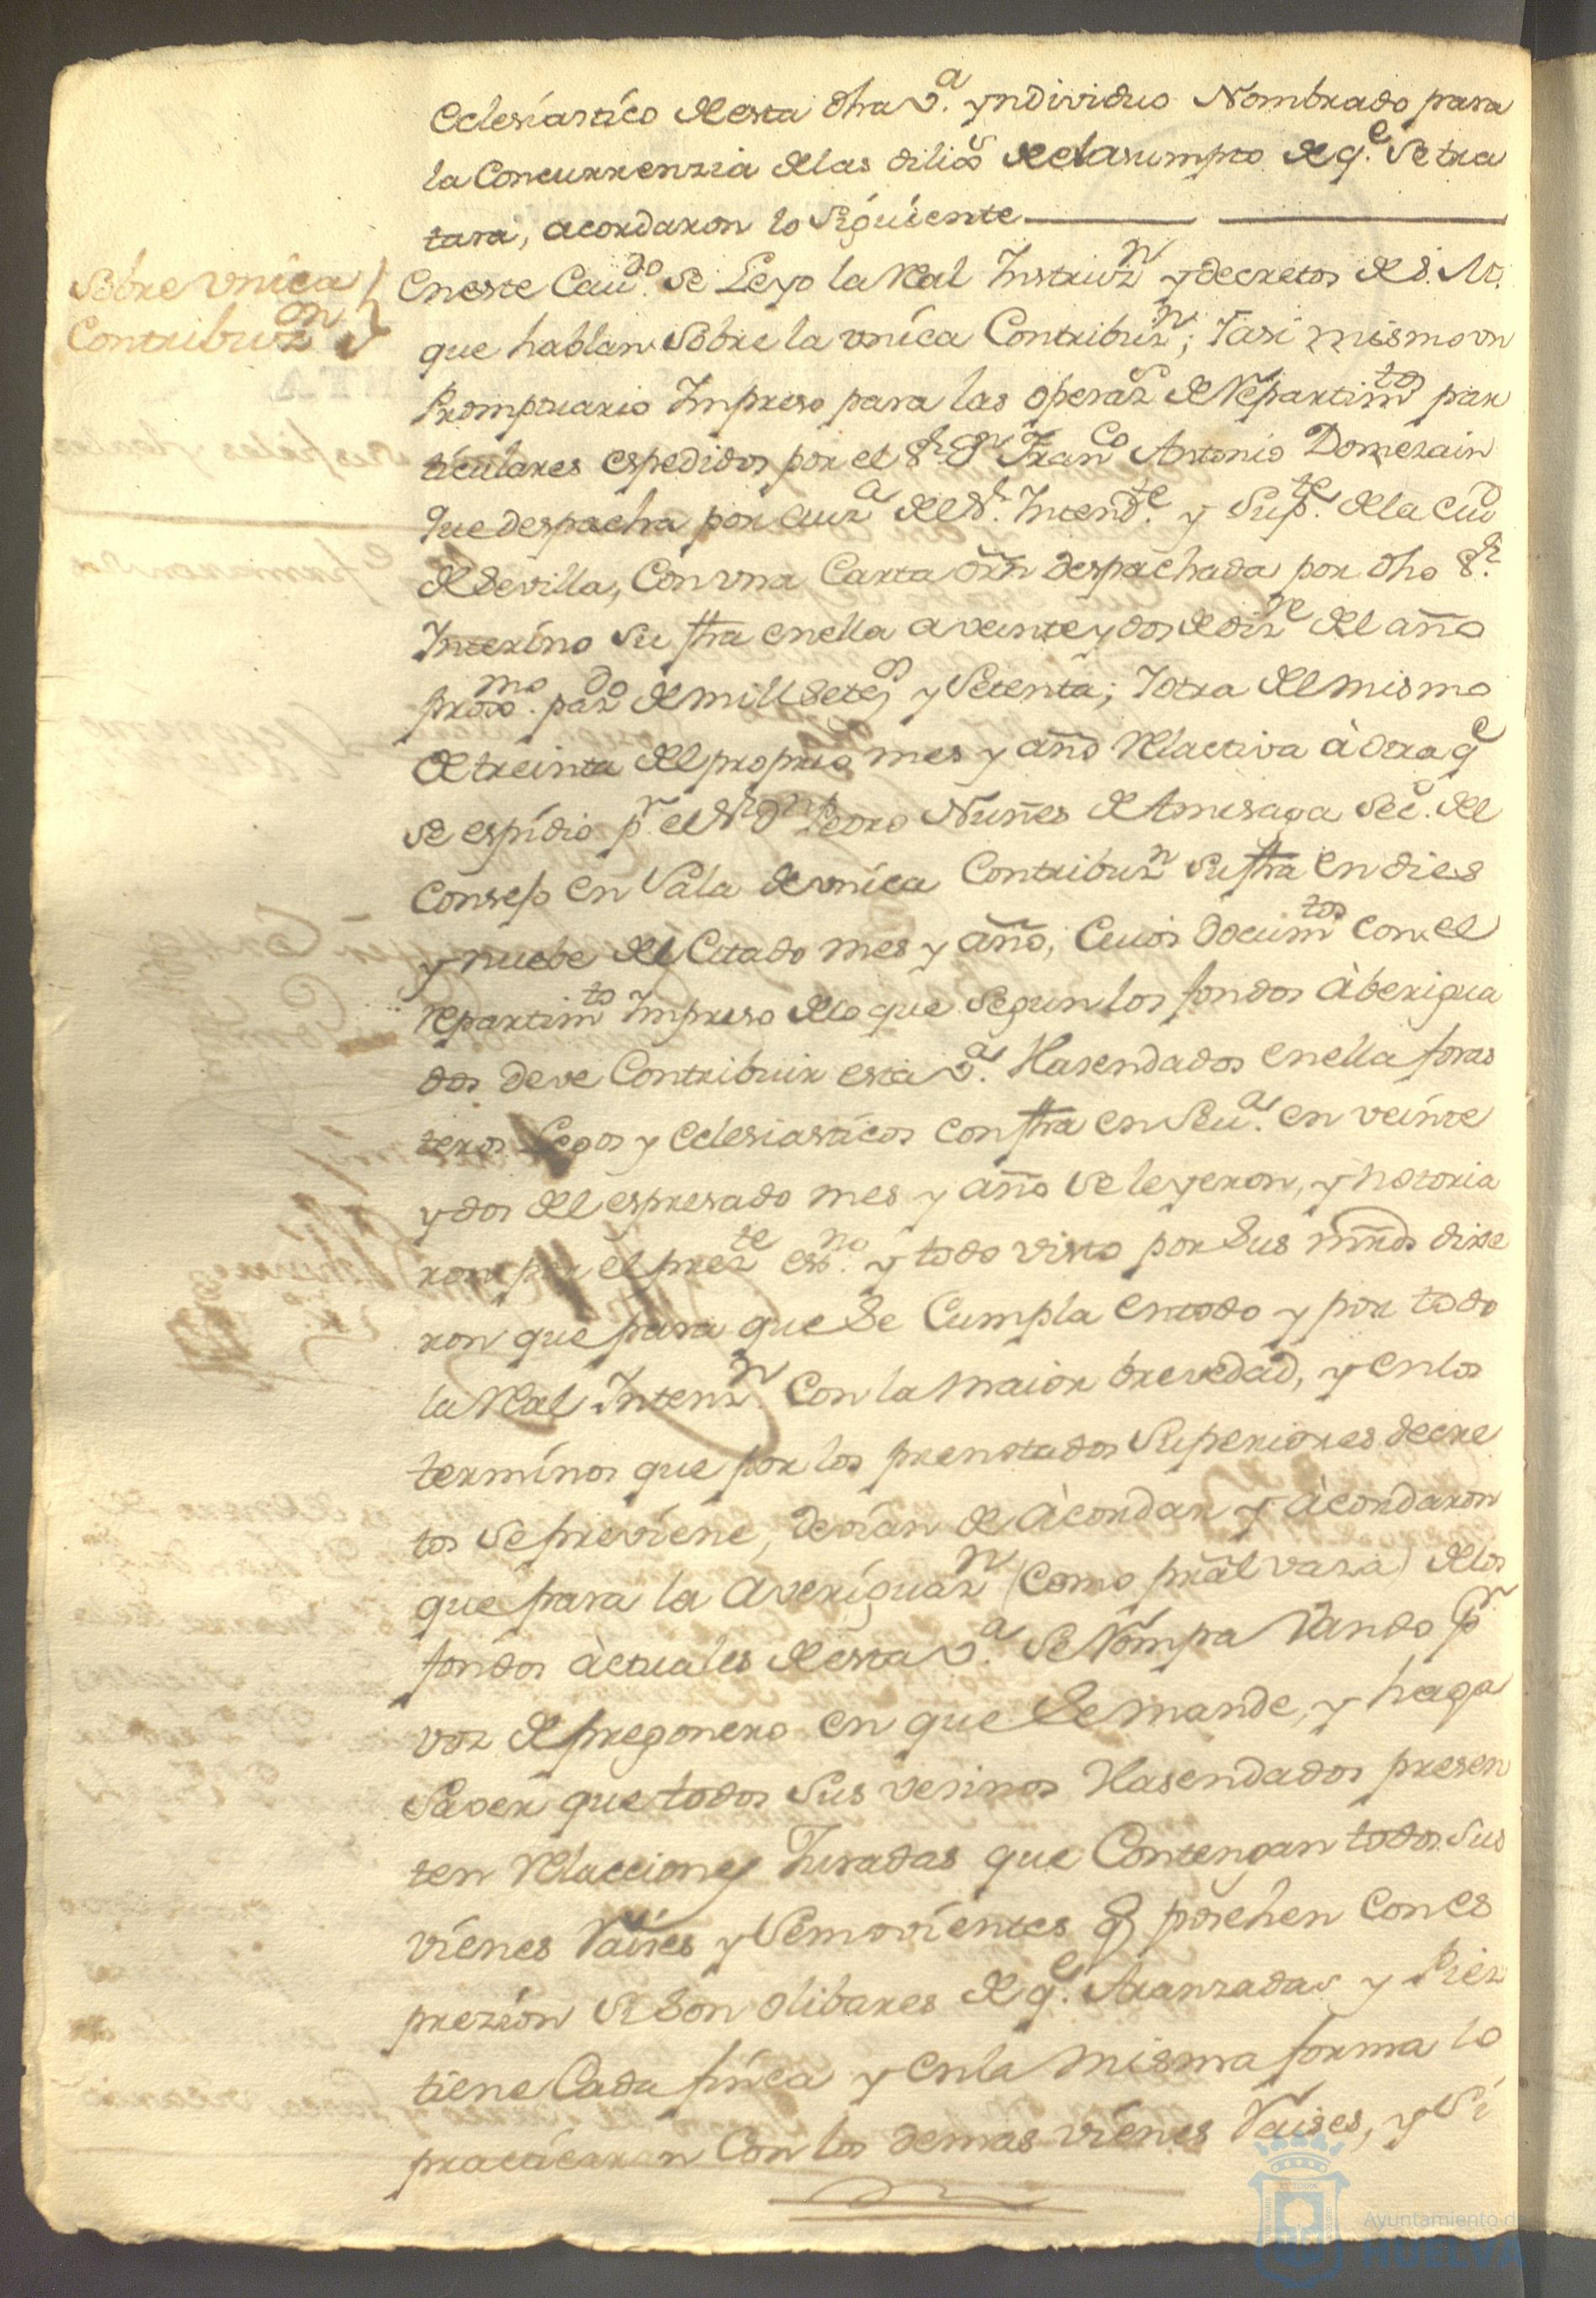 eclesiastico de esta dha v.ª yndividuo Nombrado para
la Concurrenzia de las dilig.s de el asumpto de q.e se tra
tara, acordaron lo Siguiente
Sobre vnica
Contribuz.on
En este Cau.do se Leyo la Real Instruz.n y decretos de S. M.
que hablan Sobre la vnica Contribuz.n; Y asi mismo vn
Prompuario Impreso para las operaz.s de Repartim.tos par
ticulares espedidos por el S.r D.n Fran.co Antonio Domezain
que despacha por auz.ª del S.r Intend.te y Sup.te de la Ciud
de Sevilla, Con vna Carta orn despachada por dho S.r
Interino Su fha en ella a veinte y dos de diz.re del año
proxo.mo paz.do de mill Setes y Setenta; Y otra del mismo
de treinta del proprio mes y año Relactiva à otra q.e
se espidio p.r el S.r D.n Pedro Nuñes de Amesaga Sec. del
Consejo en Sala de vnica Contribuz.n Su fha en dies
y nuebe del Citado mes y año, Cuios docum.tos con el
Repartim.to Impreso de lo que Segun los fondos àberigua
dos deve Contribuir esta v.ª Hasendados en ella foras
teros Legos y eclesiasticos con fha en Seu.ª en veinte
y dos del espresado mes y año se leyeron, y notoria
ron por el prez.te esno. y todo visto por Sus mrds dixe
ron que para que Se Cumpla en todo y por todo
la Real Intenz.n Con la maior brevedad, y en los
terminos que por los prenotados Superiores decre
tos Se previene, devian de àcordar y àcordaron
que para la averiguaz.n (como pral vaza) de los
fondos àctuales de esta v.ª Se Rompa Vando p.r
voz de pregonero en que Se mande, y haga
Saver que todos Sus vesinos Hasendados presen
ten Relacciones Juradas que Contengan todos Sus
vienes Raises y Semovientes q posehen con es
prezion si Son olibares de q.e Aranzadas y Piez
tiene Cada finca y en la misma forma lo
practicaran Con los demas vienes Raises, y Si
Ayuntamiento de
HUELVA